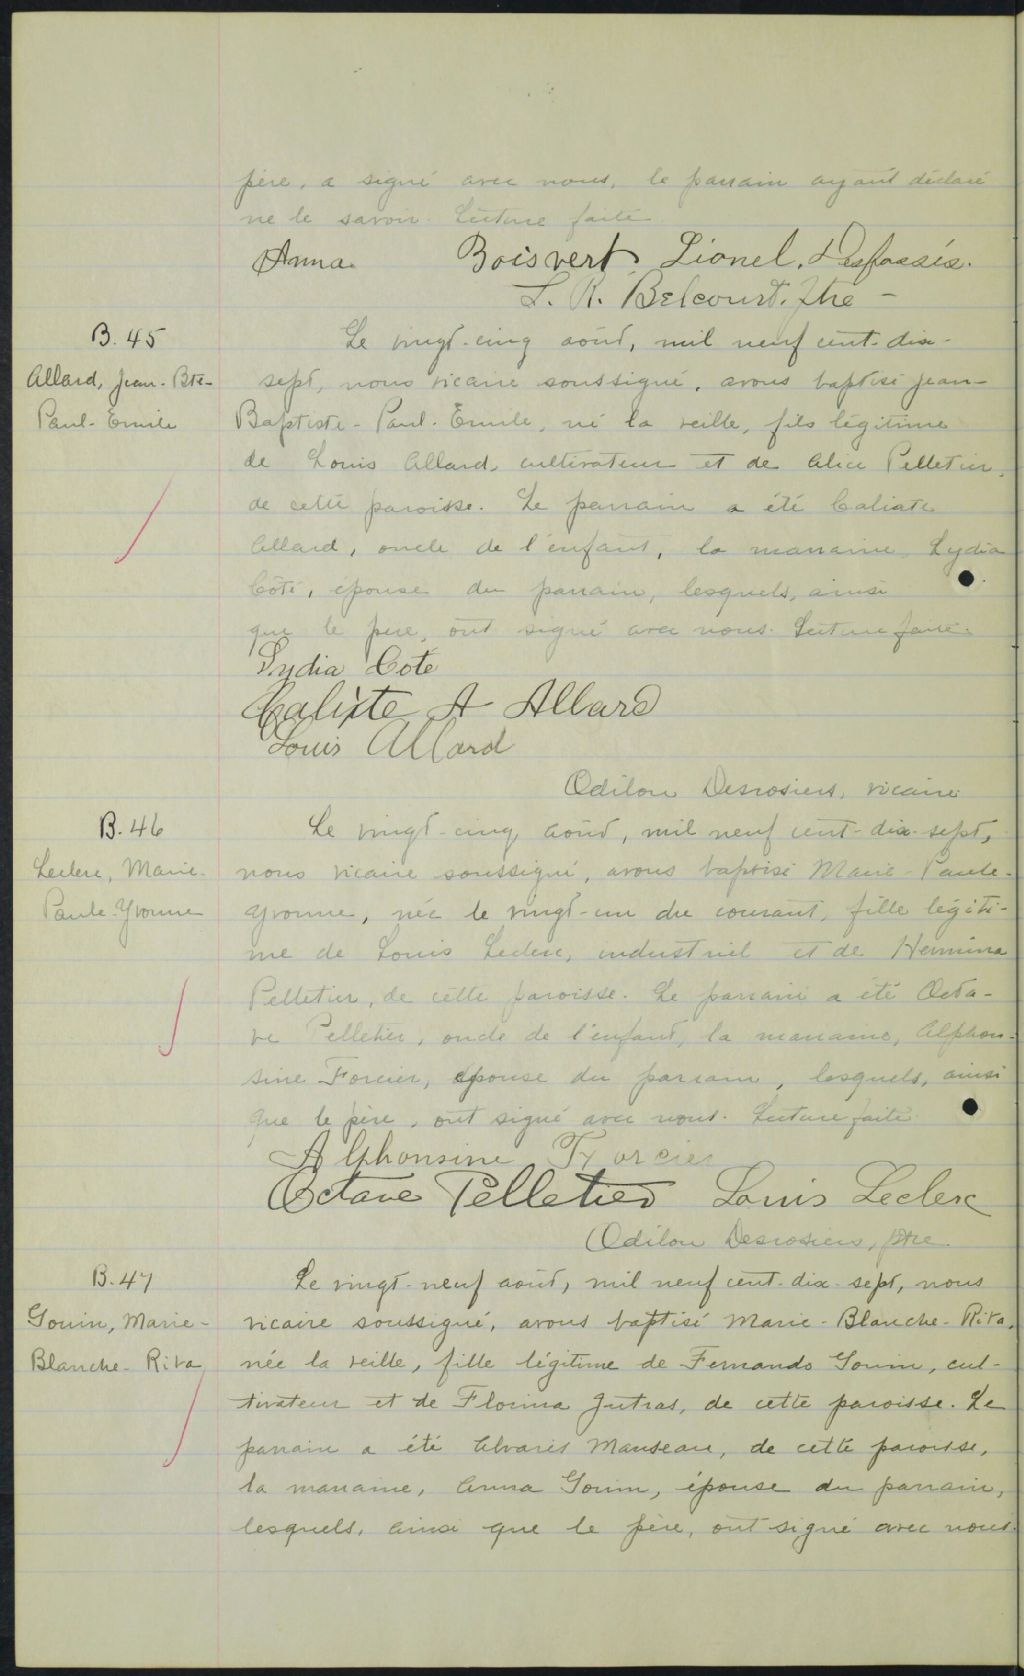 père, a signé avec nous, le parrain ayant déclaré
ne le savoir. Lecture faite.
Anna Boisvert Lionel Desfossés.
L. R. Belcourt, ptre -
B. 45
Allard, Jean-Bte-
Paul-Emile
Le vingt-cinq août, mil neuf cent-dix-
sept, nous vicaire soussigné, avons baptisé Jean-
Baptiste-Paul-Emile, né la veille, fils légitime
de Louis Allard, cultivateur et de Alice Pelletier,
de cette paroisse. Le parrain a été Calixte
Allard, oncle de l'enfant, la marraine, Lydia
Côté, épouse du parrain, lesquels, ainsi
que le père, ont signé avec nous. Lecture faite.
Lydia Cote
Calixte A Allard
Louis Allard
Odilon Desrosiers, vicaire
B. 46
Leclerc, Marie-
Paule-Yvonne
Le vingt-cinq août, mil neuf cent-dix-sept,
nous vicaire soussigné, avons baptisé Marie-Paule-
Yvonne, née le vingt-un du courant, fille légiti-
me de Louis Leclerc, industriel et de Hermina
Pelletier, de cette paroisse. Le parrain a été Octa-
ve Pelletier, oncle de l'enfant, la marraine, Alphon-
sine Forcier, épouse du parrain, lesquels, ainsi
que le père, ont signé avec nous. Lecture faite.
Alphonsine Forcier
Octave Pelletier Louis Leclerc
Odilon Desrosiers, ptre.
B. 47
Gouin, Marie-
Blanche-Rita
Le vingt-neuf août, mil neuf cent-dix-sept, nous
vicaire soussigné, avons baptisé Marie-Blanche-Rita,
née la veille, fille légitime de Fernando Gouin, cul-
tivateur et de Florina Jutras, de cette paroisse. Le
parrain a été Alvarès Manseau, de cette paroisse,
la marraine, Anna Gouin, épouse du parrain,
lesquels, ainsi que le père, ont signé avec nous.